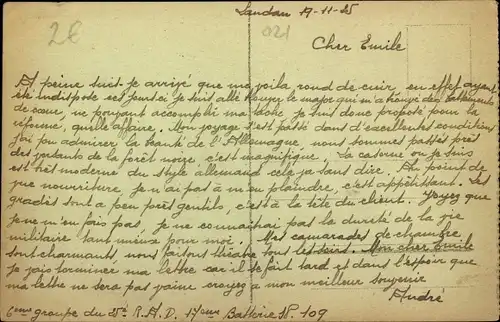 28
021
Landau 17-11-25
Cher Emile
A peine suis-je arrivé que me voila rond de cuir, en effet ayant
été indispose ces jours ci je suis allé trouver le major qui m'a trouvé des battements
de cœur, ne pouvant accomplir ma tâche je suis donc proposé pour la
réforme, quelle affaire. Mon voyage s'est passé dans d'excellentes conditions
j'ai pu admirer la beauté de l'Allemagne, nous sommes passés près
des jordants de la forêt noire, c'est magnifique, la caserne ou je suis
est très moderne du style allemand cela va sans dire. Au point de
vue nourriture, je n'ai pas à m'en plaindre, c'est appétissant. Les
gradés sont a peu près gentils, c'est à la tête du client. Voyez que
je ne m'en fais pas, je ne connaitrai pas la dureté de la vie
militaire tant mieux pour moi. Mes camarades de chambre
sont charmants, nous faisons théâtre tous les soirs. Mon cher Emile
je vais terminer ma lettre car il se fait tard et dans l'espoir que
ma lettre ne sera pas vaine croyez a mon meilleur souvenir
André
6ème groupe du 25e R.A.D. 17ème Batterie SP. 109